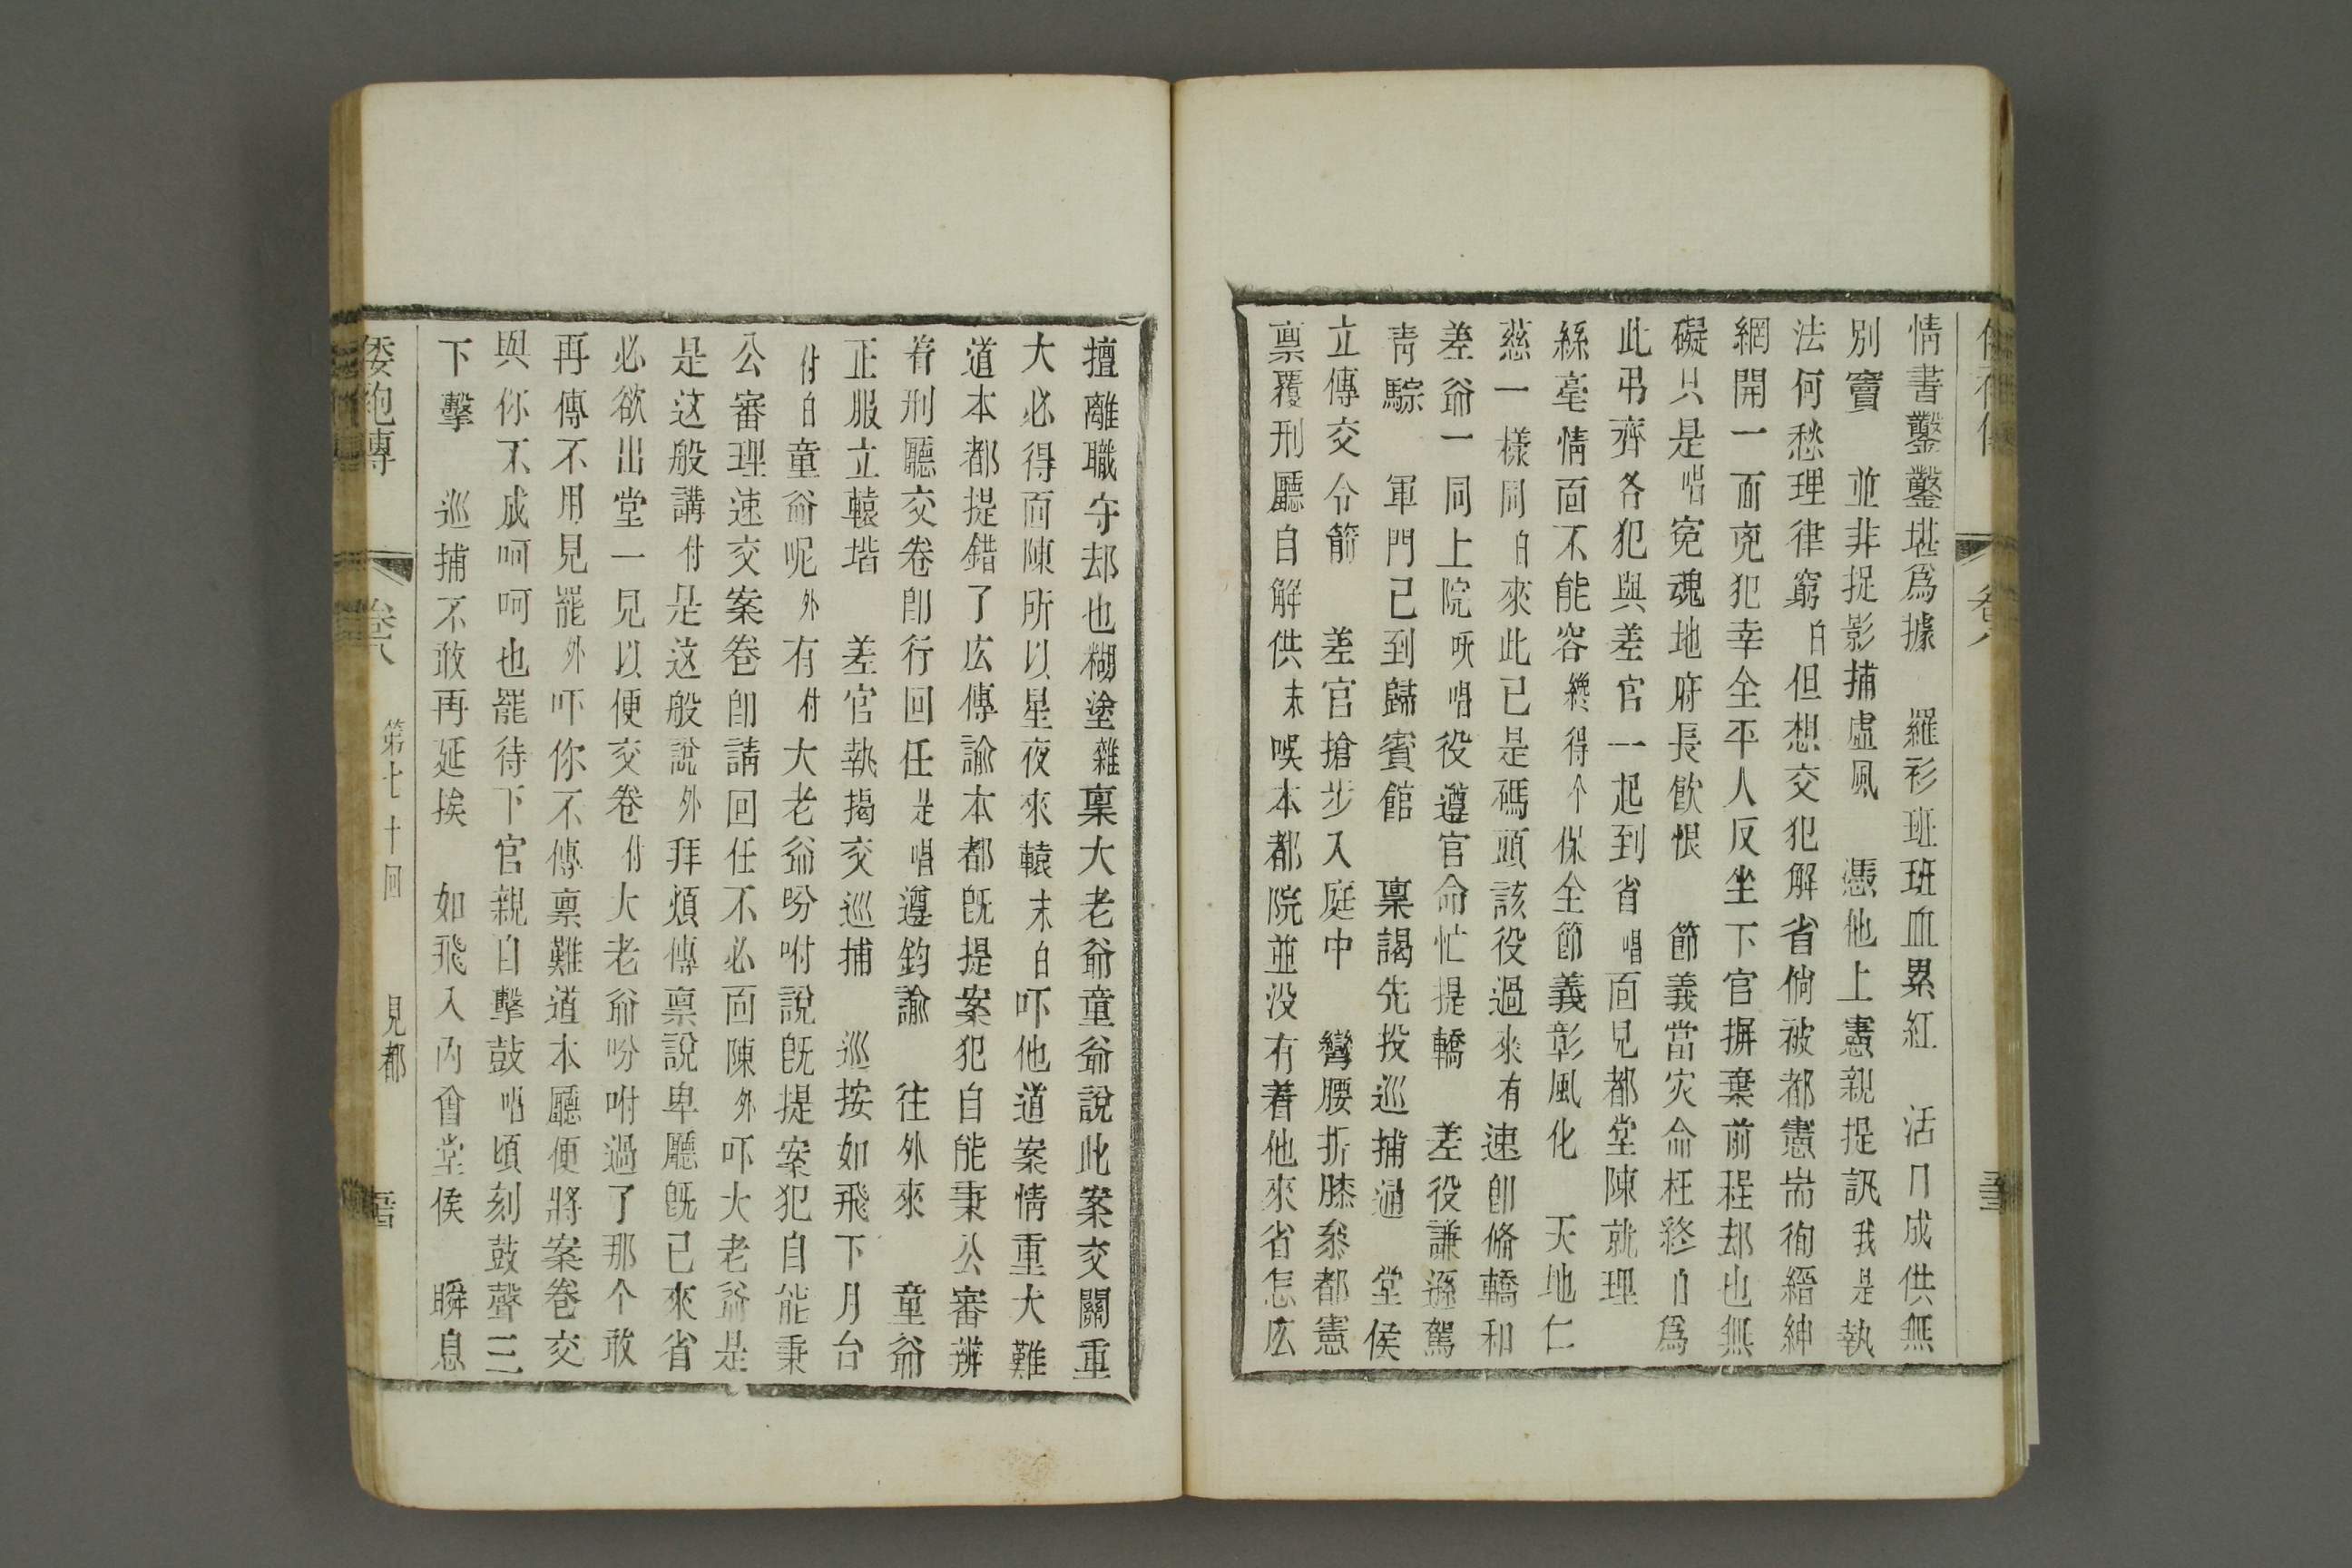 情書鑿鑿堪爲據　羅衫班班血累紅　活口成供無
別竇　並非捉影捕虛風　憑他上憲親提訊我是執
法何愁理律窮白但想交犯解省倘被都憲耑徇縉紳
網開一面兇犯幸全平人反坐下官摒棄前程却也無
礙只是唱寃魂地府長飲恨　節義當灾命枉終白爲
此弔齊各犯與差官一起到省唱面見都堂陳就理
絲毫情面不能容纔得个保全節義彰風化　天地仁
慈一樣同白來此已是碼頭該役過來有速卽俻轎和
差爺一同上院唱役遵官命忙提轎　差役謙遜駕
靑騌　軍門已到歸賓館　稟謁先投巡捕通　堂侯
立傳交令箭　差官搶步入庭中　彎腰折膝叅都憲
稟覆刑廳自解供末唉本都院並没有着他來省怎広
擅離職守却也糊塗雜稟大老爺童爺說此案交關重
大必得面陳所以星夜來轅末白吓他道案情重大難
道本都提錯了広傳諭本都旣提案犯自能秉公審辦
着刑廳交卷卽行回任是唱遵鈞諭　往外來　童爺
正服立轅堦　差官執揭交巡捕　巡按如飛下月台
付白童爺呢外有付大老爺吩咐說旣提案犯自能秉
公審理速交案卷卽請回任不必面陳外吓大老爺是
是这般講付是这般說外拜煩傳稟說卑廳旣已來省
必欲出堂一見以便交卷付大老爺吩咐過了那个敢
再傳不用見罷外吓你不傳稟難道本廳便將案卷交
與你不成呵呵也罷待下官親自擊鼓唱頃刻鼓聲三
下擊　巡捕不敢再延挨　如飛入內會堂侯　瞬息
倭袍傳　卷八　第七十回　見都